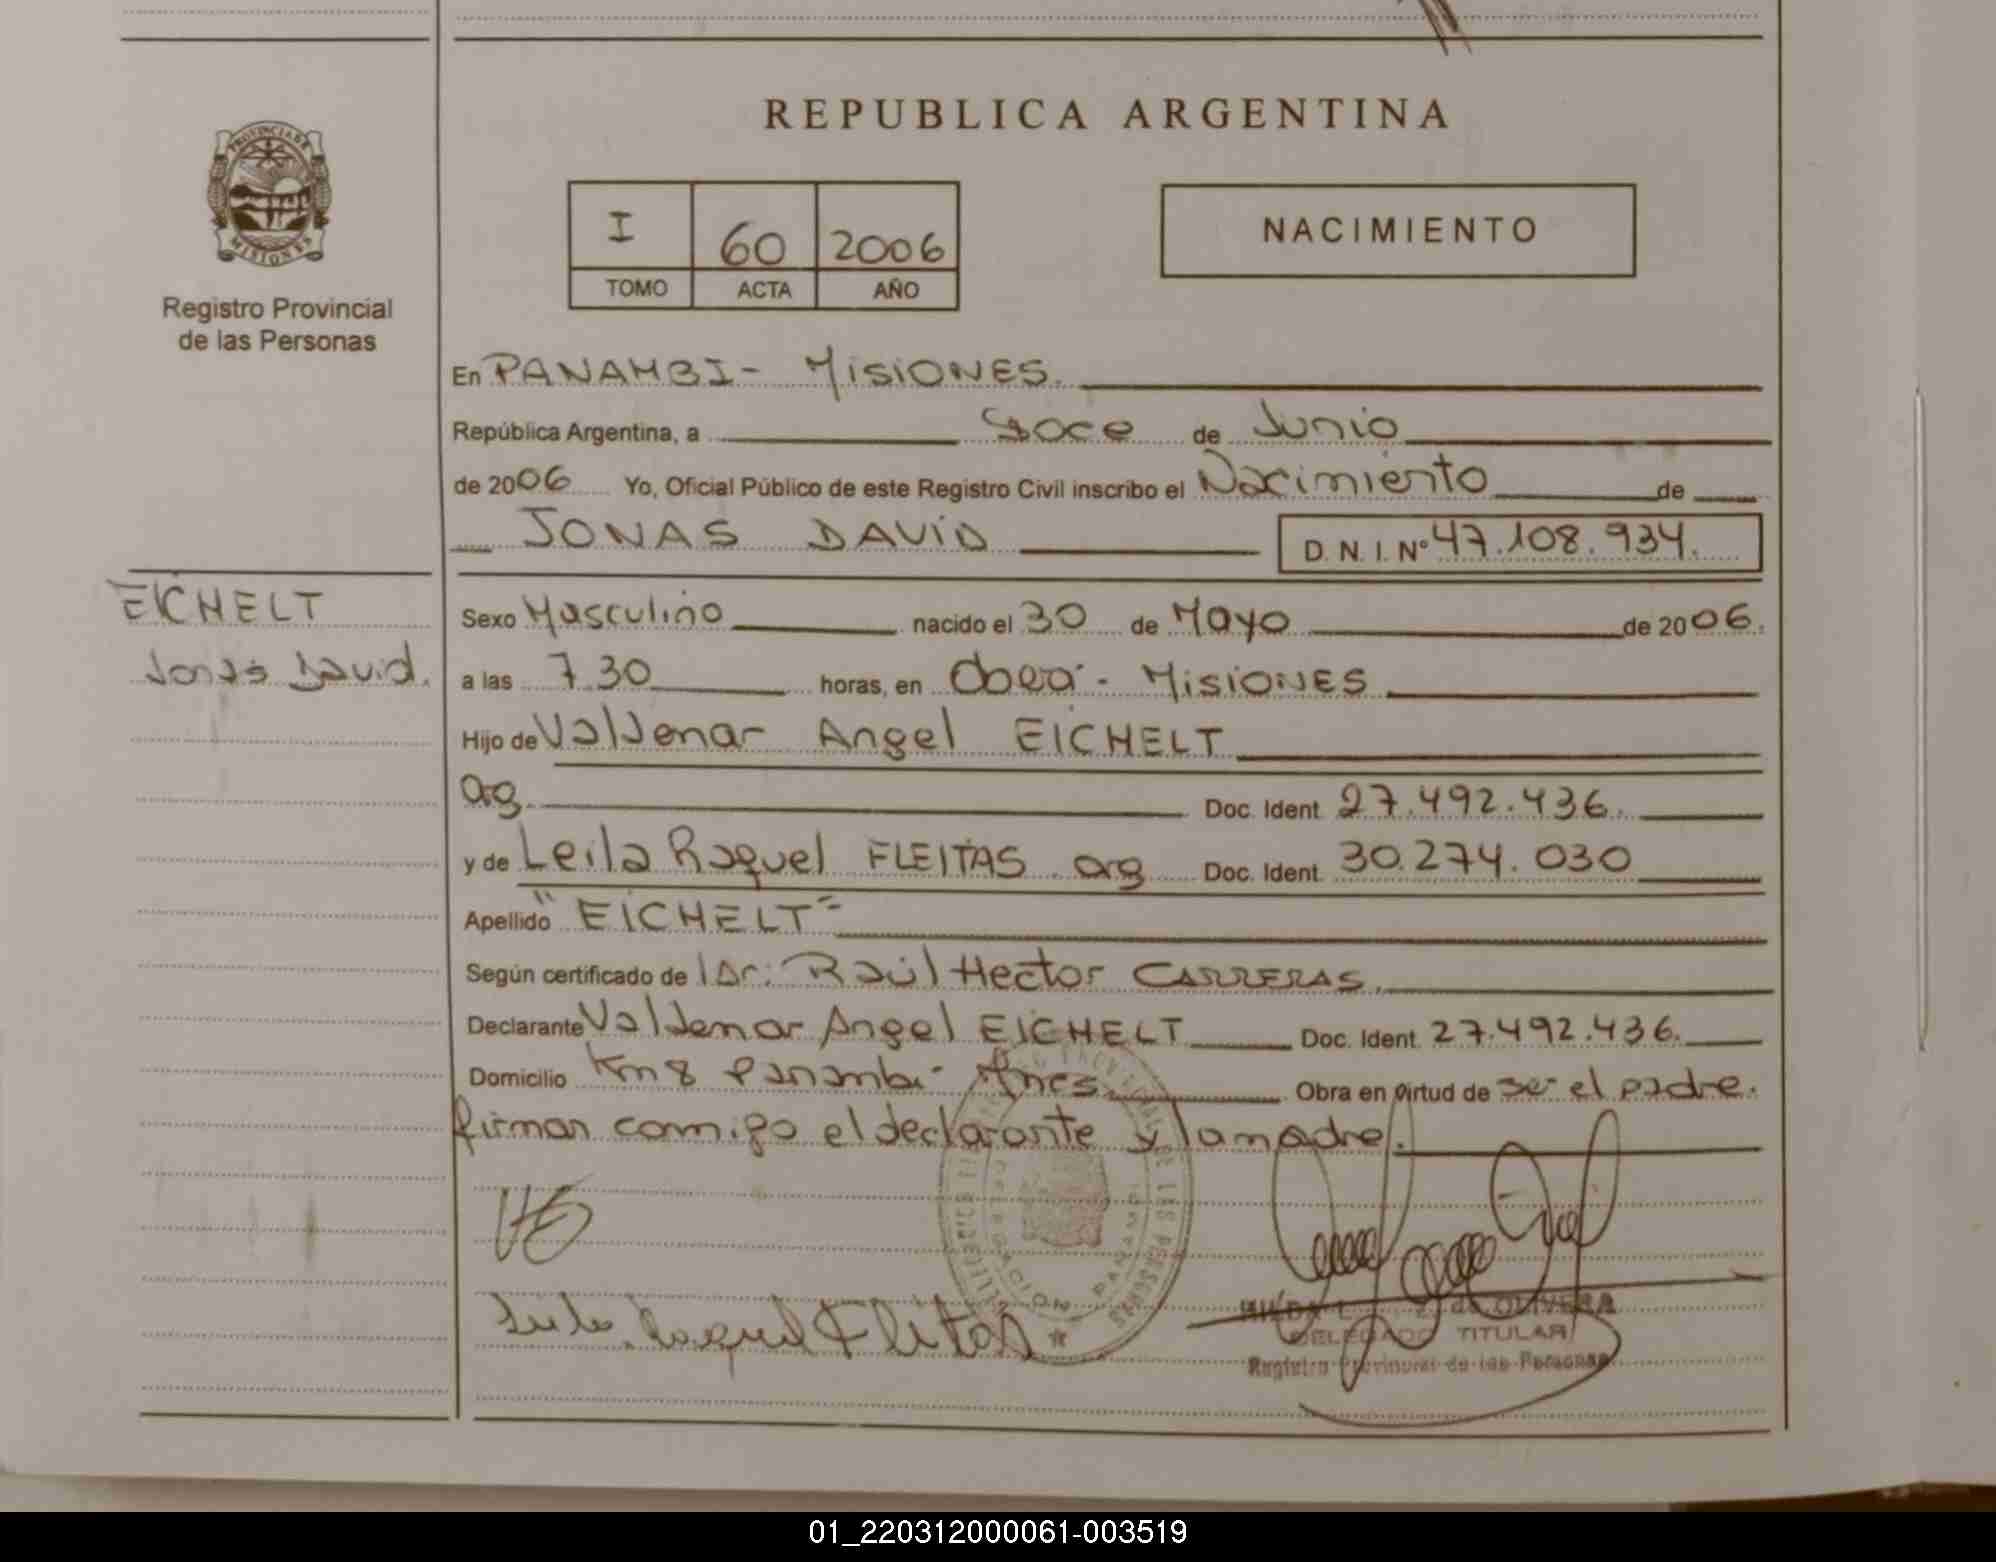 REPUBLICA ARGENTINA
PROVINCIA DE
MISIONES
Registro Provincial
de las Personas
I 60 2006
TOMO ACTA AÑO
NACIMIENTO
En PANAMBI - MISIONES.
República Argentina, a doce de Junio
de 2006 Yo, Oficial Público de este Registro Civil inscribo el Nacimiento de
JONAS DAVID D. N. I. Nº 47.108.934.
EICHELT
Jonas David.
Sexo Masculino nacido el 30 de Mayo de 2006.
a las 7.30 horas, en Oberá - MISIONES
Hijo de Valdemar Angel EICHELT
arg. Doc. Ident. 27.492.436.
y de Leila Raquel FLEITAS arg Doc. Ident. 30.274.030
Apellido "EICHELT"
Según certificado de Dr: Raúl Hector CARRERAS.
Declarante Valdemar Angel EICHELT Doc. Ident. 27.492.436.
Domicilio Km 8 Panambi - Mnes. Obra en virtud de ser el padre.
firman conmigo el declarante y la madre.
DELEGACION PANAMBI
Raquel Fleitas
HILDA L. de OLIVERA
DELEGADO TITULAR
Registro Provincial de las Personas
01_220312000061-003519